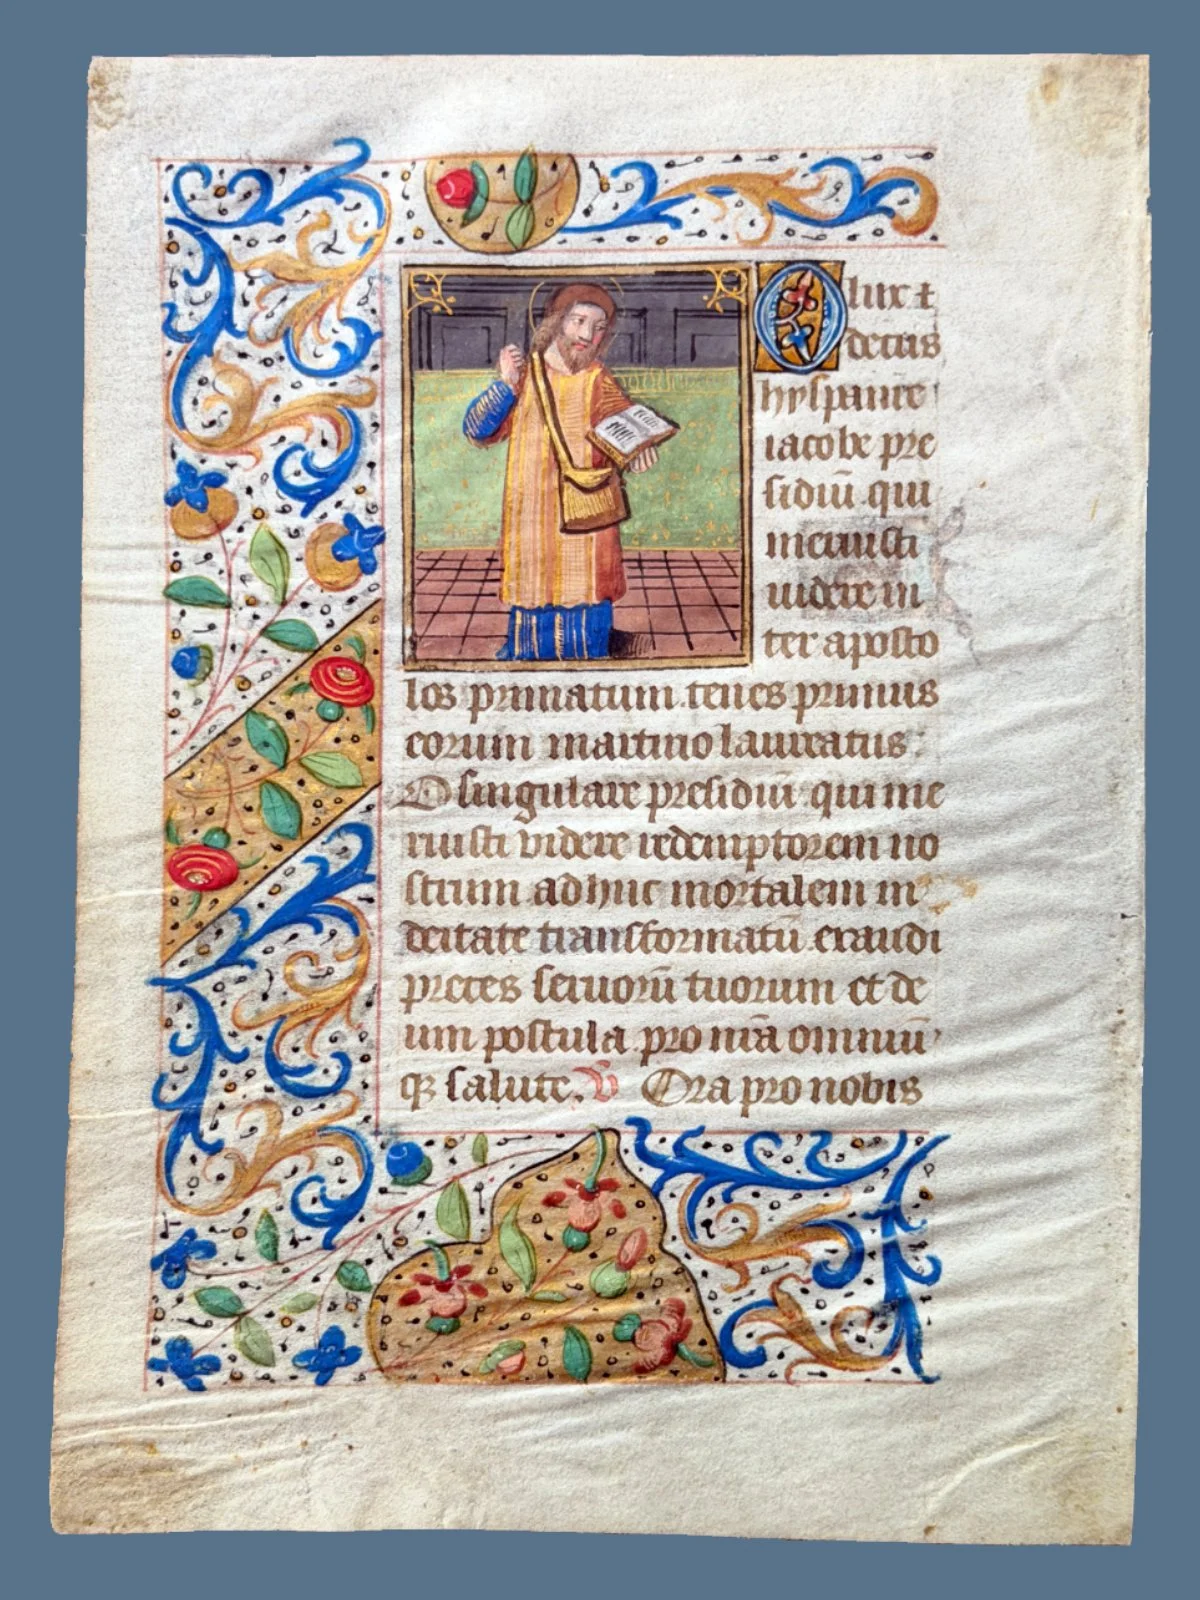 O lux et
decus
hyspanie
iacobe pre
sidiū qui
meruisti
videre in
ter aposto
los primatum tenes primus
eorum martirio laureatus:
O singulare presidiū qui me
ruisti videre redemptorem no
strum adhuc mortalem in
deitate transformatū exaudi
preces seruorū tuorum et de
um postula pro nr̄a omniū
qȝ salute. V̄ Ora pro nobis